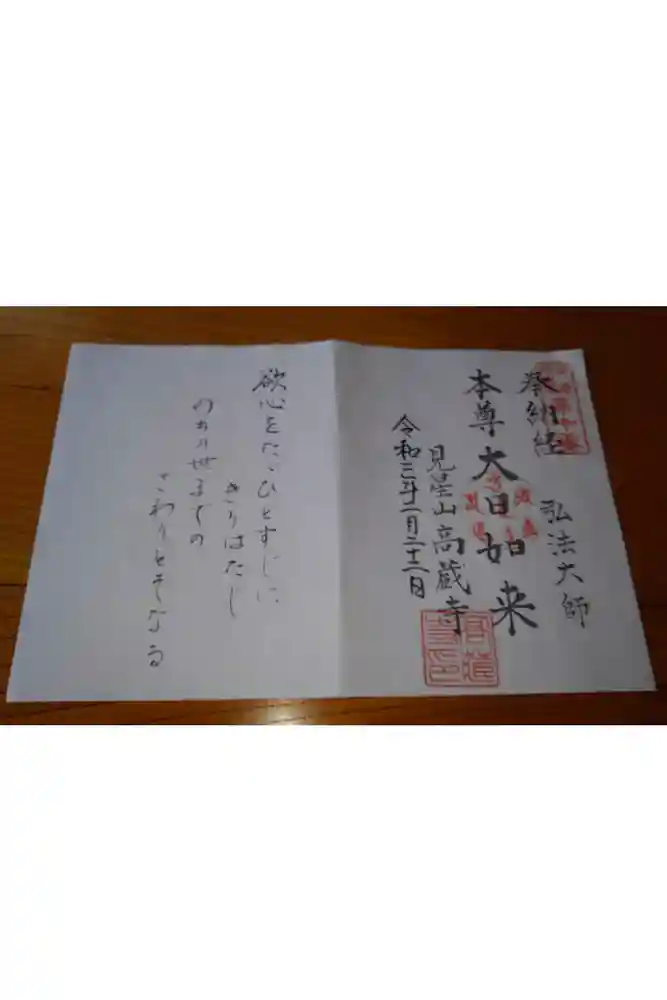 奉納経
弘法大師
本尊 大日如来
見星山 高蔵寺
令和三年二月二十二日
高蔵寺印
欲心をたゞひとすじに
きりはたし
のちの世までの
さわりとそなる